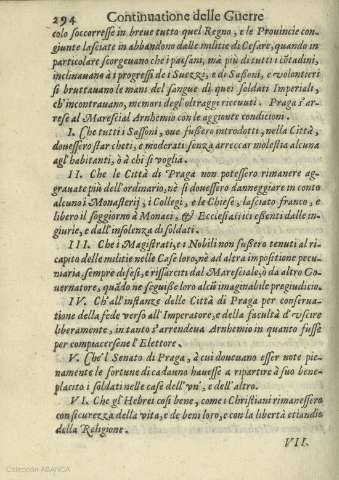 294 Continuatione delle Guerre
colo soccorresse in breve tutto quel Regno, e le Provincie con-
giunte lasciate in abbandono dalle militie di Cesare, quando in
particolare scorgeuano che i paesani, ma più di tutti i cōtadini,
inclinauano à i progressi de i Suezzi, e di Sassoni, e volontieri
si bruttauano le mani del sangue di quei soldati Imperiali,
ch'incontrauano, memori degl'oltraggi riceuuti. Praga s'ar-
rese al Marescial Arnhemio con le aggiunte conditioni.
I. Che tutti i Sassoni, oue fussero introdotti, nella Città,
douessero star cheti, e moderati senza arreccar molestia alcuna
agl'habitanti, ò à chi si voglia.
II. Che le Città di Praga non potessero rimanere ag-
grauate più dell'ordinario, nè si douessero danneggiare in conto
alcuno i Monasterij, i Collegi, e le Chiese, lasciato franco, e
libero il soggiorno à Monaci, & Ecclesiastici esenti dalle in-
giurie, e dall'insolenza di soldati.
III. Che i Magistrati, e i Nobili non fussero tenuti al ri-
capito delle militie nelle Case loro, nè ad altra impositione pecu-
niaria, sempre difesi, e rissarciti dal Maresciale, ò da altro Go-
uernatore, quādo ne seguisse loro alcū imaginabile pregiudicio.
IV. Ch'all'instanze delle Città di Praga per conserua-
tione della fede verso all'Imperatore, e della facultà d'vscire
liberamente, in tanto s'arrendeua Arnhemio in quanto fusse
per compiacersene l'Elettore.
V. Che'l Senato di Praga, à cui doueuano esser note pie-
namente le fortune di cadauno hauesse à ripartire à suo bene-
placito i soldati nelle case dell'vn', e dell'altro.
VI. Che gl'Hebrei così bene, come i Christiani rimanessero
con sicurezza della vita, e de beni loro, e con la libertà etiandio
della Religione.
VII.
Colección ABANCA